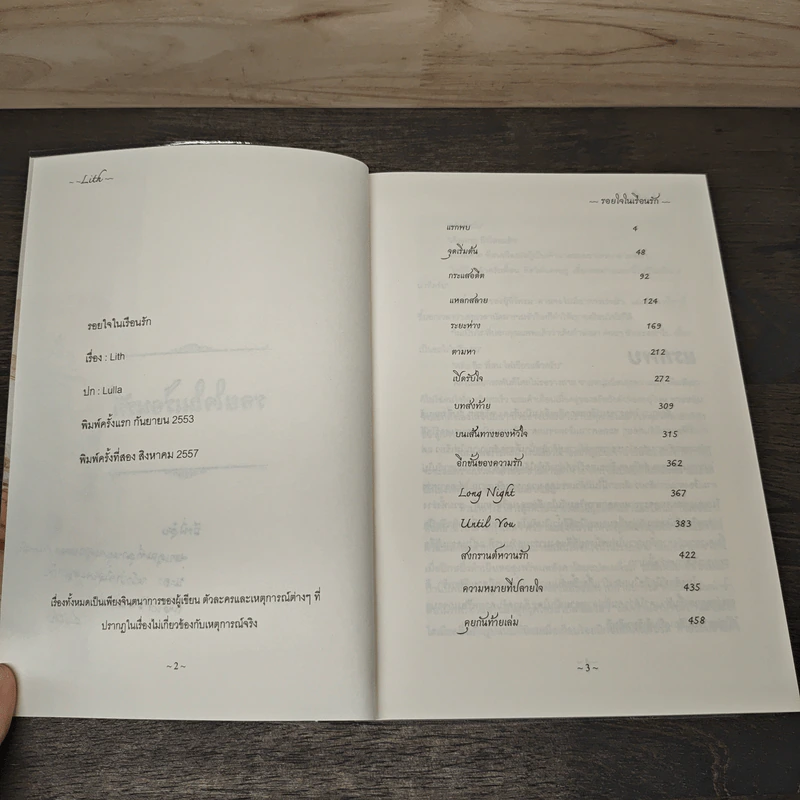 ~ ~Lith ~
รอยใจในเรือนรัก
เรื่อง : Lith
ปก : Lulla
พิมพ์ครั้งแรก กันยายน 2553
พิมพ์ครั้งที่สอง สิงหาคม 2557
เรื่องทั้งหมดเป็นเพียงจินตนาการของผู้เขียน ตัวละครและเหตุการณ์ต่างๆ ที่
ปรากฏในเรื่องไม่เกี่ยวข้องกับเหตุการณ์จริง
~ 2 ~
— รอยใจในเรือนรัก —
แรกพบ 4
จุดเริ่มต้น 48
กระแสอดีต 92
แหลกสลาย 124
ระยะห่าง 169
ตามหา 212
เปิดรับใจ 272
บทส่งท้าย 309
บนเส้นทางของหัวใจ 315
อีกขั้นของความรัก 362
Long Night 367
Until You 383
สงกรานต์หวานรัก 422
ความหมายที่ปลายใจ 435
คุยกันท้ายเล่ม 458
~ 3 ~